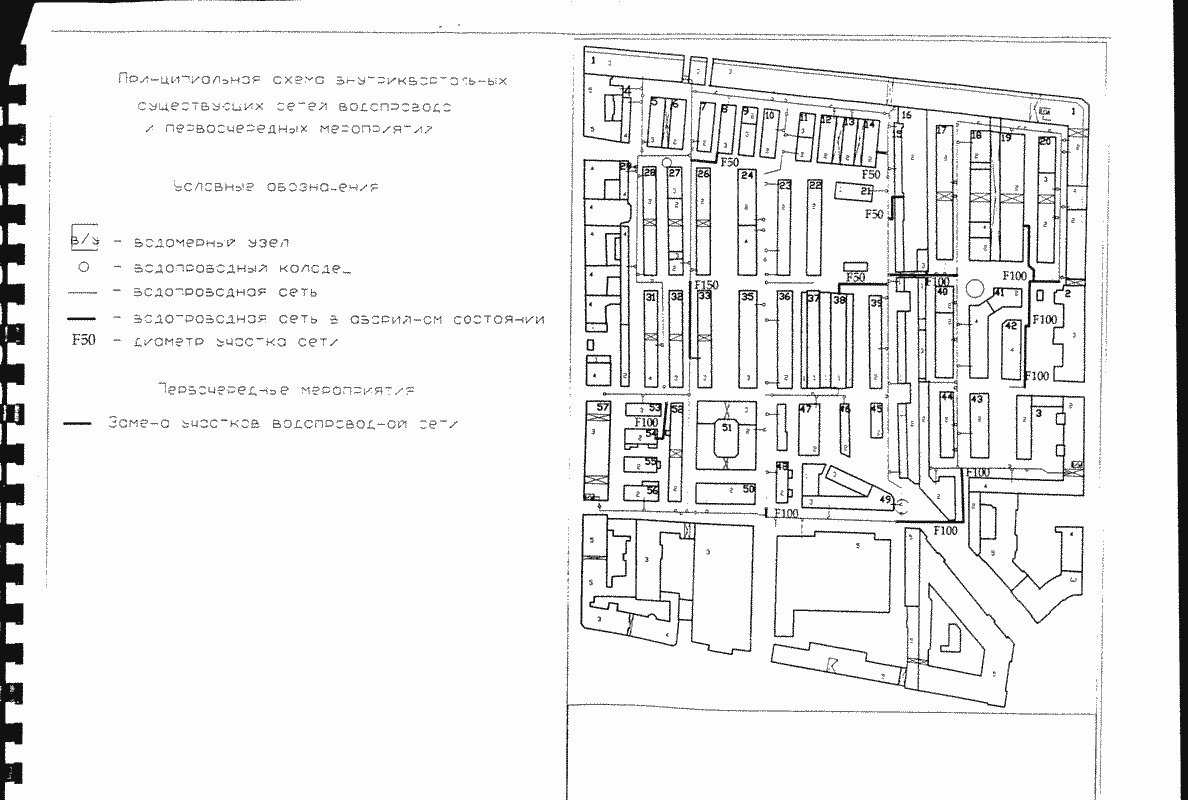 Принципиальная схема внутриквартальных
существующих сетей водопровода
и первоочередных мероприятий
Условные обозначения
в/у - водомерный узел
- водопроводный колодец
- водопроводная сеть
- водопроводная сеть в аварийном состоянии
F50 - диаметр участка сети
Первоочередные мероприятия
Замена участков водопроводной сети
1
34
5 6 7 8 9 10 11 12 13 14 15 16 17 18 19 20
1
F50
F50
F50
29 28 27 26 24 23 22 21
F50
F100
F100
F150
31 32 33 35 36 37 38 39 40 41 2
42
F100
F100
57 53 52 51 47 46 45 44 43 3
F100
54
55
56 50 48 49
F100
F100
F100